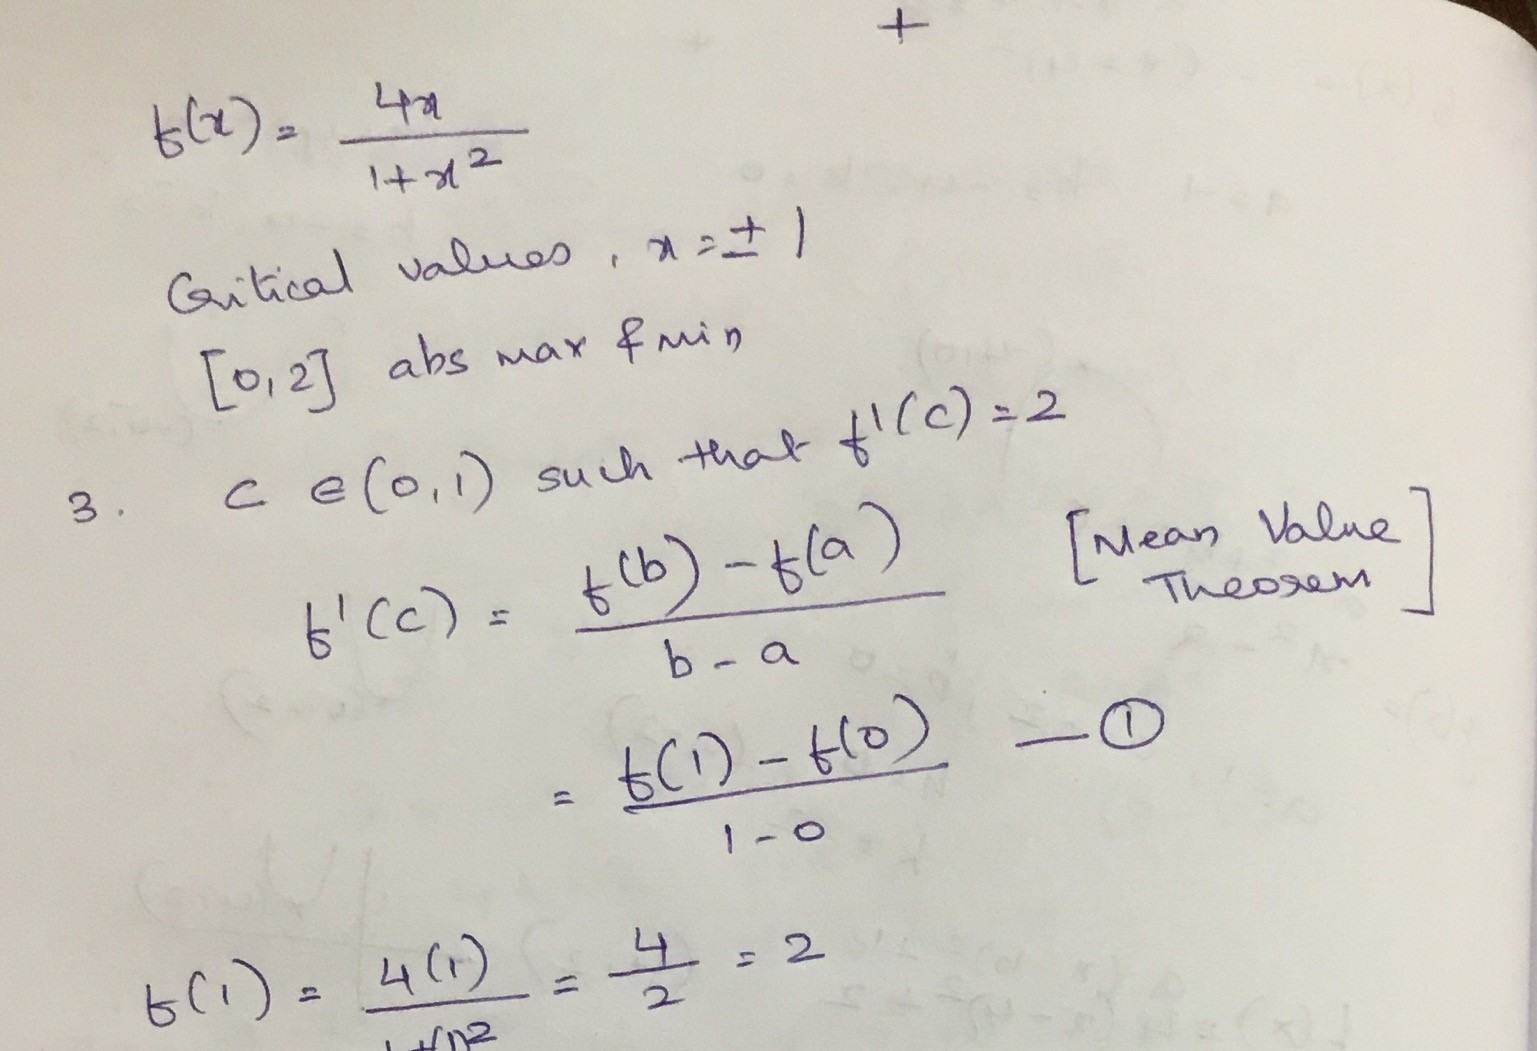 +
f(x) = 4x / 1+x²
Critical values, x = ± 1
[0,2] abs max & min
3. c ∈ (0,1) such that f'(c) = 2
f'(c) = f(b) - f(a) / b - a [Mean Value Theorem]
= f(1) - f(0) / 1 - 0 — ①
f(1) = 4(1) / 1+(1)² = 4 / 2 = 2